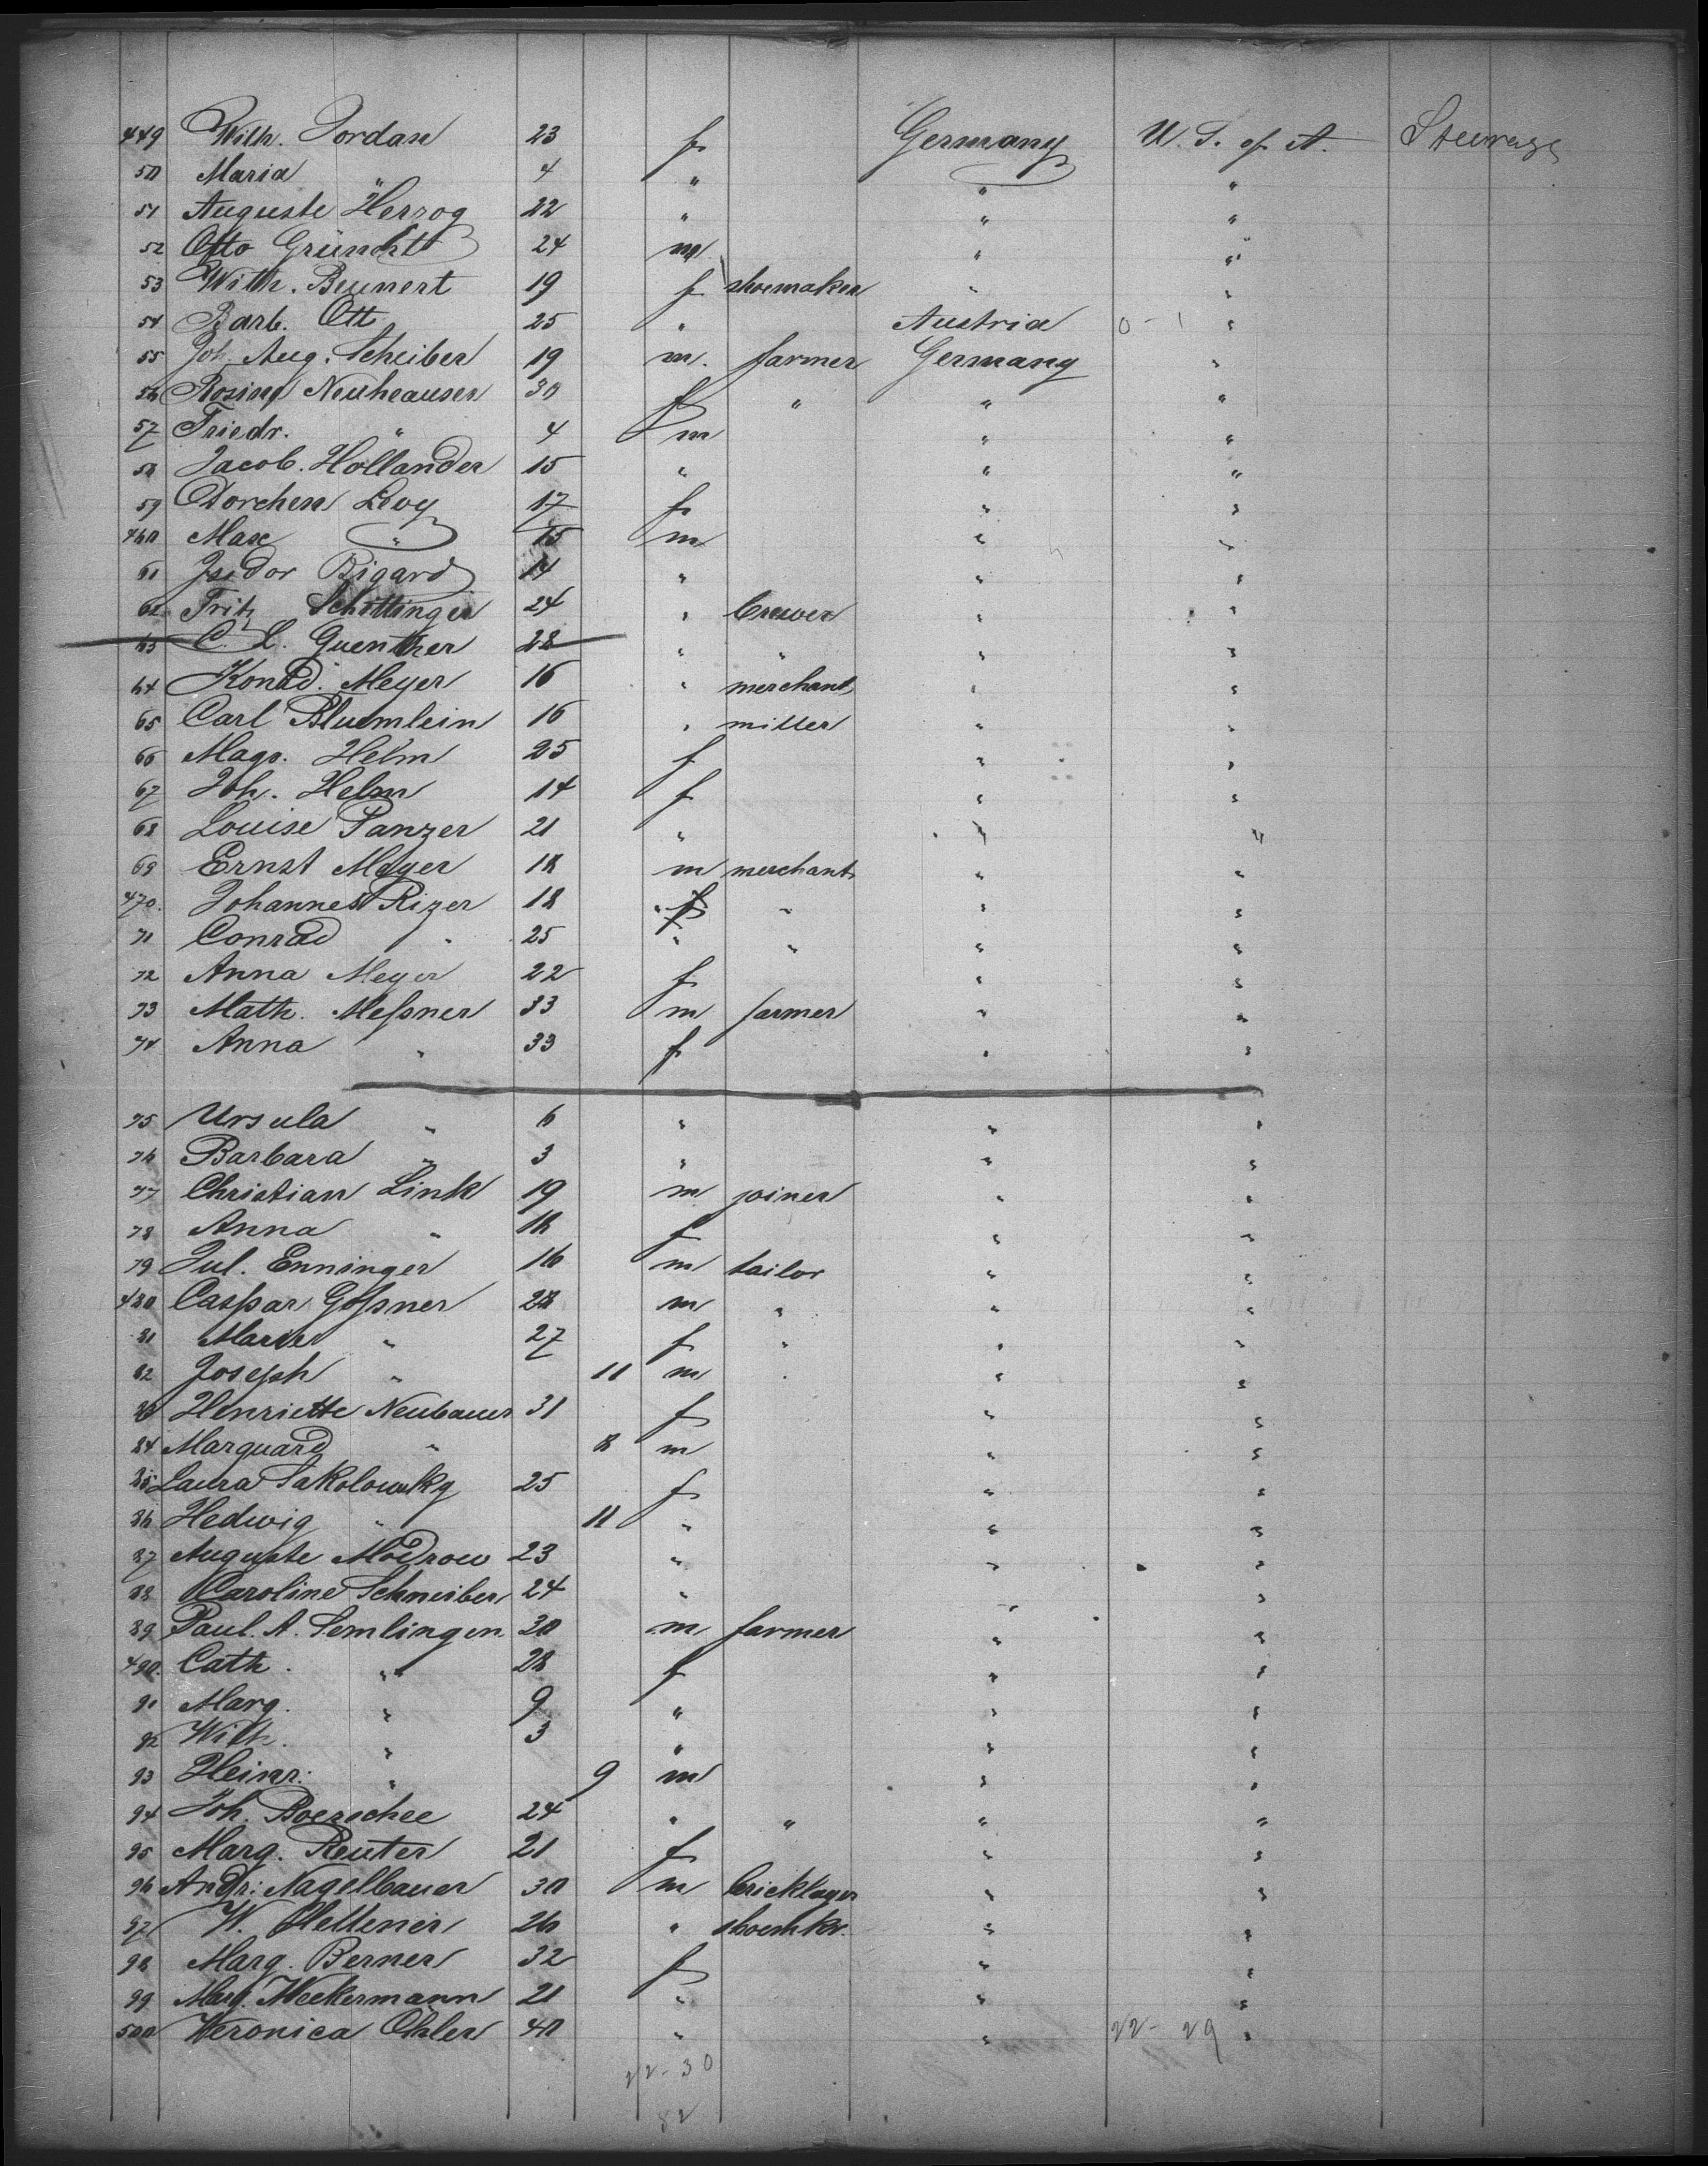 449 Wilh. Jordan 23 f Germany U. S. of A. Steerage
50 Maria " 4 " " "
51 Auguste Herzog 22 " " "
52 Otto Gründht 24 m " "
53 Wilh. Beunert 19 f shoemaker " "
54 Barb. Ott 25 " Austria 0 - 1 "
55 Joh. Aug. Scheiber 19 m. farmer Germany "
56 Rosina Neuheauser 30 f " " "
57 Friedr. " 4 m " "
58 Jacob. Hollander 15 " " "
59 Dorchen Levy 17 f " "
460 Max " 15 m " "
61 Isidor Bigard 14 " " "
62 Fritz Schittinger 24 " brewer " "
63 C. L. Guenther 28 " " " "
64 Konrad. Meyer 16 " merchant " "
65 Carl Bluemlein 16 " miller " "
66 Mago. Helm 25 f " "
67 Joh. Helm 14 f " "
68 Louise Panzer 21 " " "
69 Ernst Meyer 18 m merchant " "
470. Johannes Rizer 18 " f " " "
71 Conrad " 25 " " " "
72 Anna Meyer 22 f " "
73 Math. Meßner 33 m farmer " "
74 Anna " 33 f " "
75 Ursula " 6 " " "
76 Barbara " 3 " " "
77 Christian Link 19 m joiner " "
78 Anna " 18 f " "
79 Jul. Enninger 16 m tailor " "
480 Caspar Goßner 28 m " " "
81 Marie " 27 f " " "
82 Joseph " 11 m " " "
83 Henriette Neubauer 31 f " "
84 Marquard " 8 m " "
85 Laura Sakolowsky 25 f " "
86 Hedwig " 11 " " "
87 Auguste Modrow 23 " " "
88 Caroline Schneiber 24 " " "
89 Paul. A. Semlingen 30 m farmer " "
490. Cath. " 28 f " "
91 Marg. " 9 " " "
92 Wilh. " 3 " " "
93 Heinr. " 9 m " "
94 Joh. Boerschee 24 " " " "
95 Marg. Reuter 21 f " "
96 Andr: Nagelbauer 30 m bricklayer " "
97 W. Hettener 26 " shoemkr. " "
98 Marg. Berner 32 f " "
99 Marg. Weckermann 21 " " "
500 Veronica Öhler 40 " " 22 - 29 "
22 - 30
82